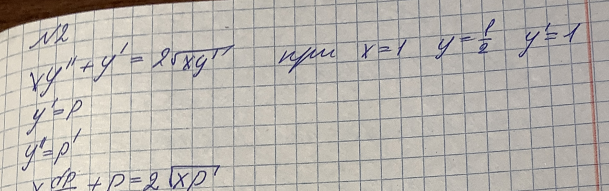 №2
xy'' + y' = 2√xy' при x=1 y=1/2 y'=1
y'=p
y''=p'
x dp + p = 2√xp'